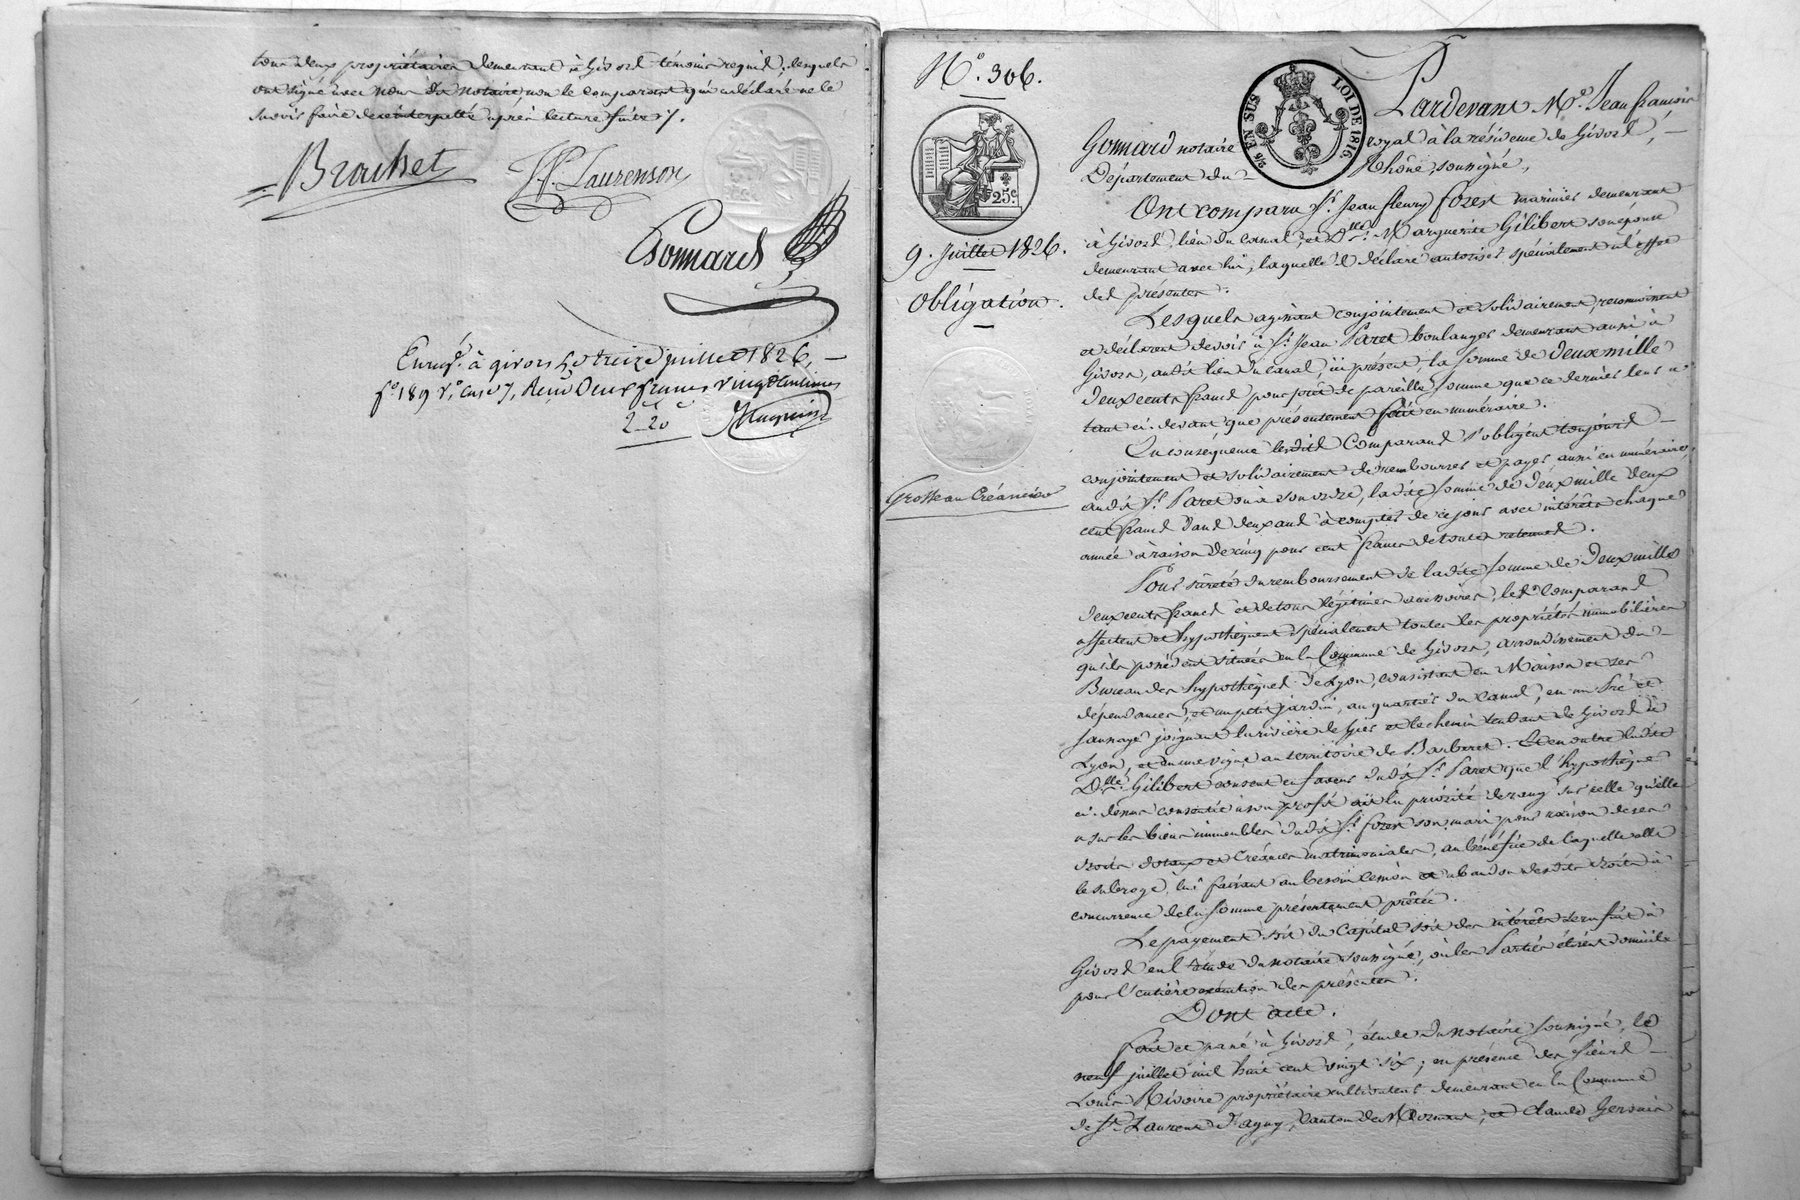 tous deux propriétaires demeurant à Givord témoins requis, lesquels
ont signé avec nous dit notaire, non le comparant qui a déclaré ne le
savoir faire de ce interpellé après lecture faite ./.
Brachet
JP. Laurenson
Gonnard
Enregt. à givors le treize juillet 1826, —
fo. 189 vo. case 7, Reçu Deux francs vingt centimes
2 — 20 c
No. 306.
25c.
9. Juillet 1826.
Obligation.
Grosse au Créancier
EN SUS
LOI DE 1816.
Pardevant Me. Jean françois
Gonnard notaire royal à la résidence de Givord, —
Département du Rhône, soussigné,
Ont comparu Sr. Jean fleury Forest marinier demeurant
à Givord, lieu du canal, et Dlle. Marguerite Gilibert son épouse
demeurant avec lui, laquelle il déclare autoriser spécialement à l'effet
des présentes.
Lesquels agissant conjointement et solidairement, reconnaissent
et déclarent devoir à Sr. Jean Paret boulanger demeurant aussi à
Givors, audit lieu du canal, ici présent, la somme de deux mille
deux cents francs pour prêt de pareille somme que ce dernier leur a
tant ci-devant que présentement fait en numéraire.
En conséquence lesdits Comparans s'obligent toujours —
conjointement et solidairement de rembourser et payer aussi en numéraire,
audit Sr. Paret ou à son ordre, ladite somme de deux mille deux
cent francs dans deux ans à compter de ce jour avec intérêts chaque
année à raison de cinq pour cent francs de toutes retenues.
Pour sûreté du remboursement de ladite somme de deux mille
deux cents francs et de tous légitimes accessoires, lesd. comparans
affectent et hypothèquent spécialement toutes les propriétés immobilières
qu'ils possèdent situées en la Commune de Givors, arrondissement du —
Bureau des hypothèques de Lyon, consistant en Maison et ses
dépendances, et un petit jardin, au quartier du canal, en un Pré et
saunage joignant la rivière de Gier et le chemin tendant de Givord à
Lyon, et en une vigne au territoire de Barberet. Et en outre ladite
Dlle. Gilibert consent en faveur dudit Sr. Paret que l'hypothèque
ci-dessus consentie à son profit ait la priorité de rang sur celle qu'elle
a sur les biens immeubles dudit Sr. forest son mari pour raison de ses
droits dotaux et Créances matrimoniales, au bénéfice de laquelle elle
le subroge, lui faisant au besoin cession et abandon desdits droits à
concurrence de la somme présentement prêtée.
Le payement soit du capital soit des intérêts sera fait à
Givord en l'étude du notaire soussigné, où les Parties élisent domicile
pour l'entière exécution des présentes.
Dont acte.
Fait et passé à Givord, étude du notaire soussigné, le
neuf juillet mil huit cent vingt six; en présence des sieurs —
Louis Rivoire propriétaire cultivateur demeurant en la Commune
de St. Laurent d'agny, Canton de Mornant, et Claude Gervais